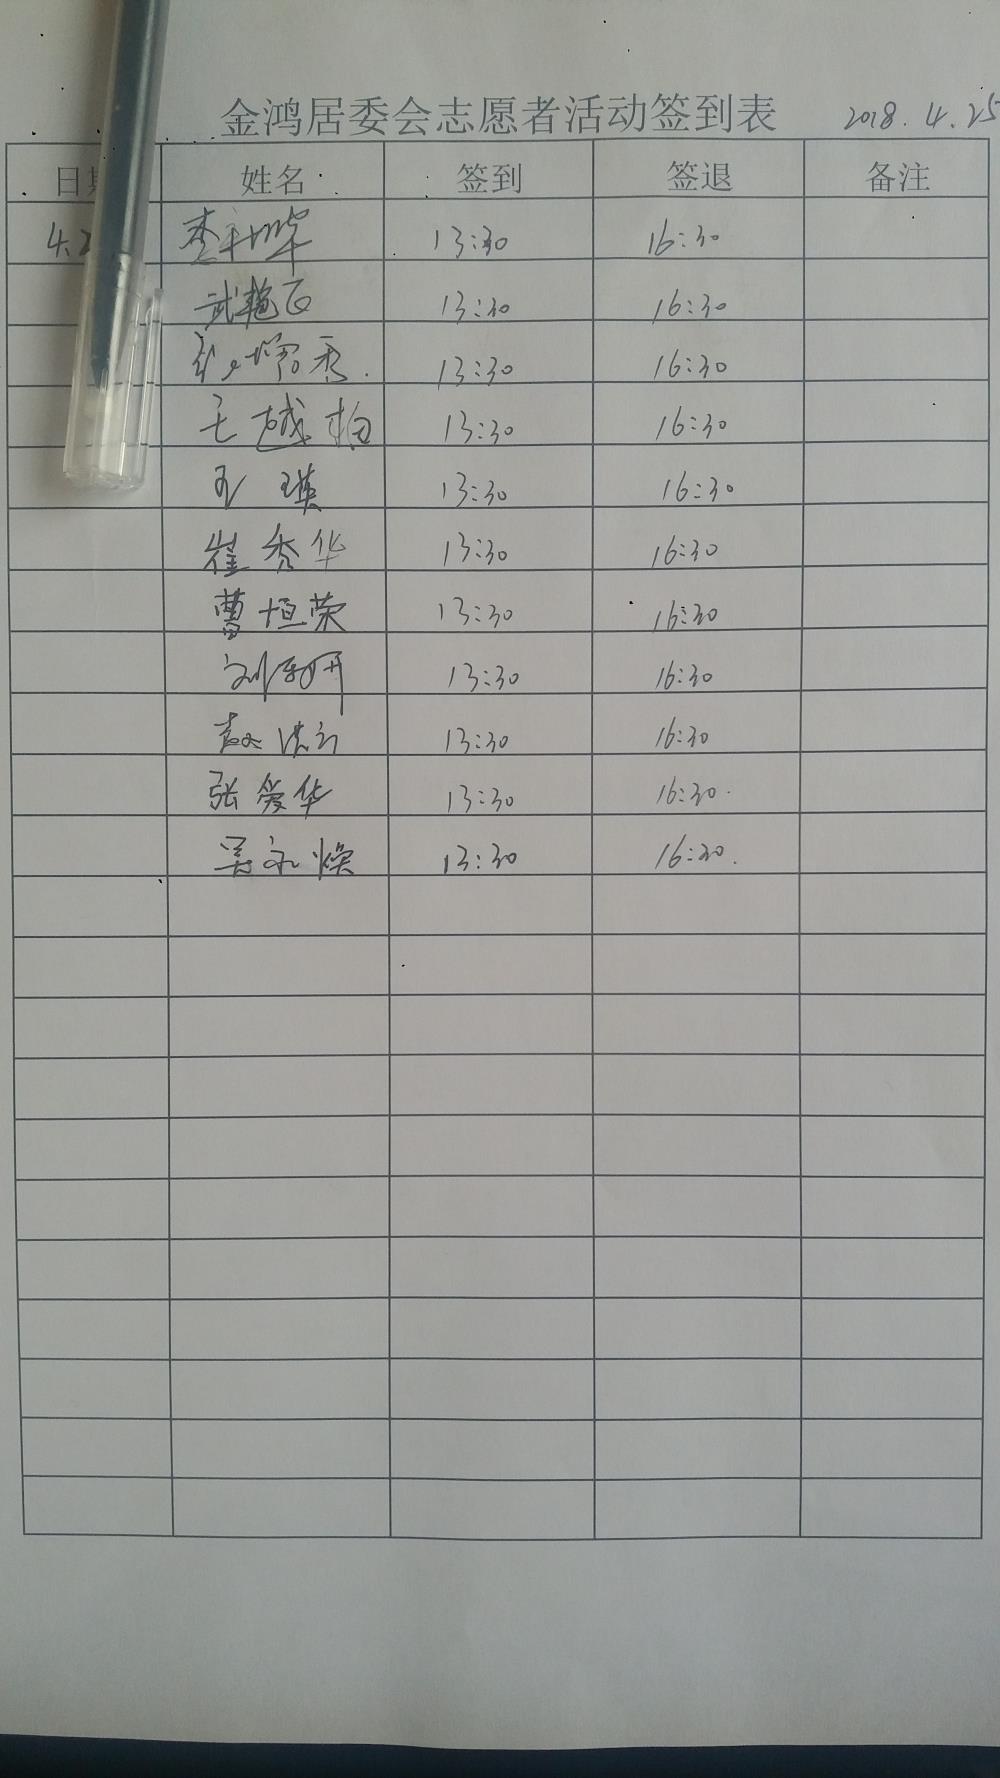 金鸿居委会志愿者活动签到表 2018.4.25
日 姓名 签到 签退 备注
4.2 13:30 16:30
武艳飞 13:30 16:30
增秀. 13:30 16:30
王越柏 13:30 16:30
瑛 13:30 16:30
崔秀华 13:30 16:30
曹恒荣 13:30 16:30
刘 妍 13:30 16:30
赵 13:30 16:30
张爱华 13:30 16:30.
吴永焕 13:30 16:30.